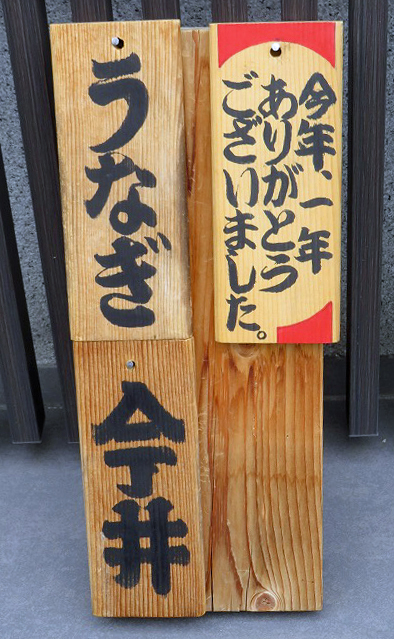 今年、一年
ありがとう
ございました。
うなぎ
今井